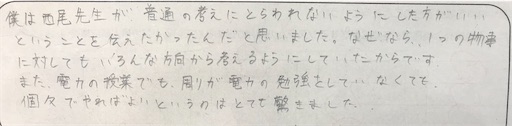 僕は西尾先生が普通の考えにとらわれないようにした方がいい
ということを伝えたかったんだと思いました。なぜなら、1つの物事
に対してもいろんな方向から考えるようにしていたからです
また、電力の授業でも、周りが電力の勉強をしていなくても、
個々でやればよいというのはとても驚きました。